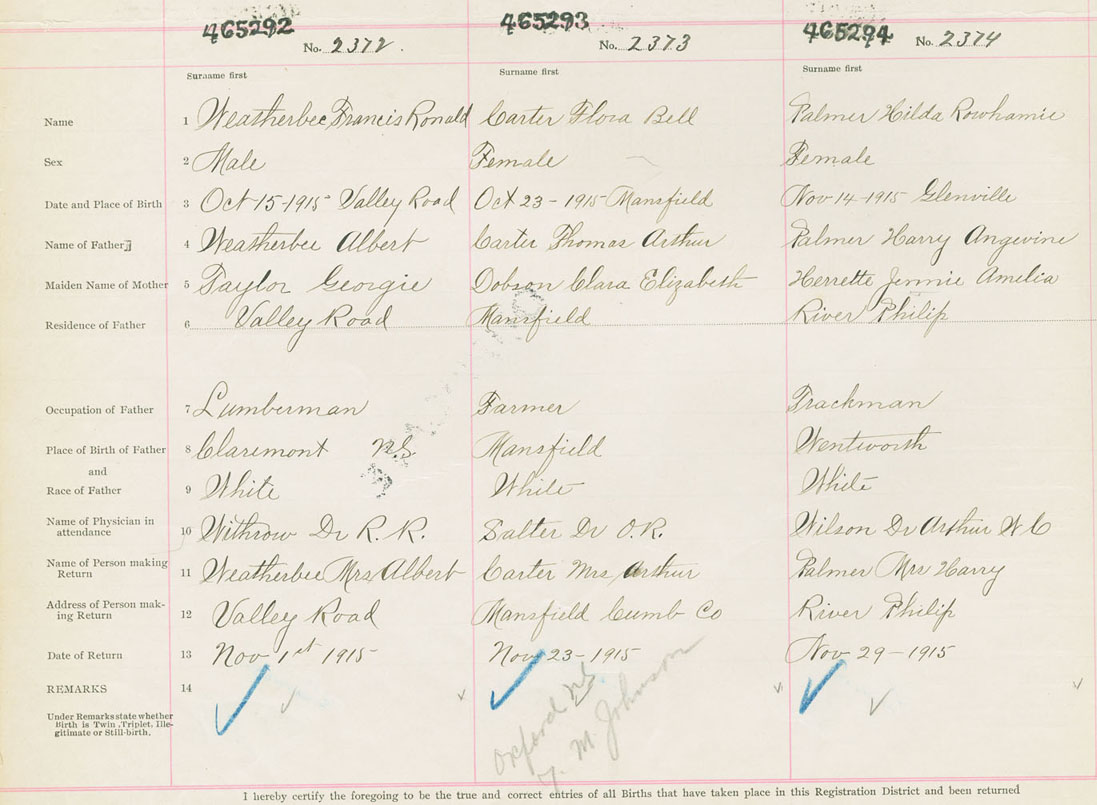 465292 465293 465294
No. 2372. No. 2373 No. 2374
Surname first Surname first Surname first
Name 1 Weatherbee Francis Ronald Carter Flora Bell Palmer Hilda Rowhamie
Sex 2 Male Female Female
Date and Place of Birth 3 Oct 15-1915 Valley Road Oct 23-1915 Mansfield Nov 14-1915 Glenville
Name of Father 4 Weatherbee Albert Carter Thomas Arthur Palmer Harry Angevine
Maiden Name of Mother 5 Taylor Georgie Dobson Clara Elizabeth Herrette Jennie Amelia
Residence of Father 6 Valley Road Mansfield River Philip
Occupation of Father 7 Lumberman Farmer Trackman
Place of Birth of Father 8 Claremont N.S. Mansfield Wentworth
and
Race of Father 9 White White White
Name of Physician in
attendance 10 Withrow Dr R. R. Salter Dr O.R. Wilson Dr Arthur W C
Name of Person making
Return 11 Weatherbee Mrs Albert Carter Mrs Arthur Palmer Mrs Harry
Address of Person mak-
ing Return 12 Valley Road Mansfield Cumb Co River Philip
Date of Return 13 Nov 1st 1915 Nov 23-1915 Nov 29-1915
REMARKS 14
Under Remarks state whether
Birth is Twin, Triplet, Ille-
gitimate or Still-birth.
Oxford N.S.
M. Johnson
I hereby certify the foregoing to be the true and correct entries of all Births that have taken place in this Registration District and been returned